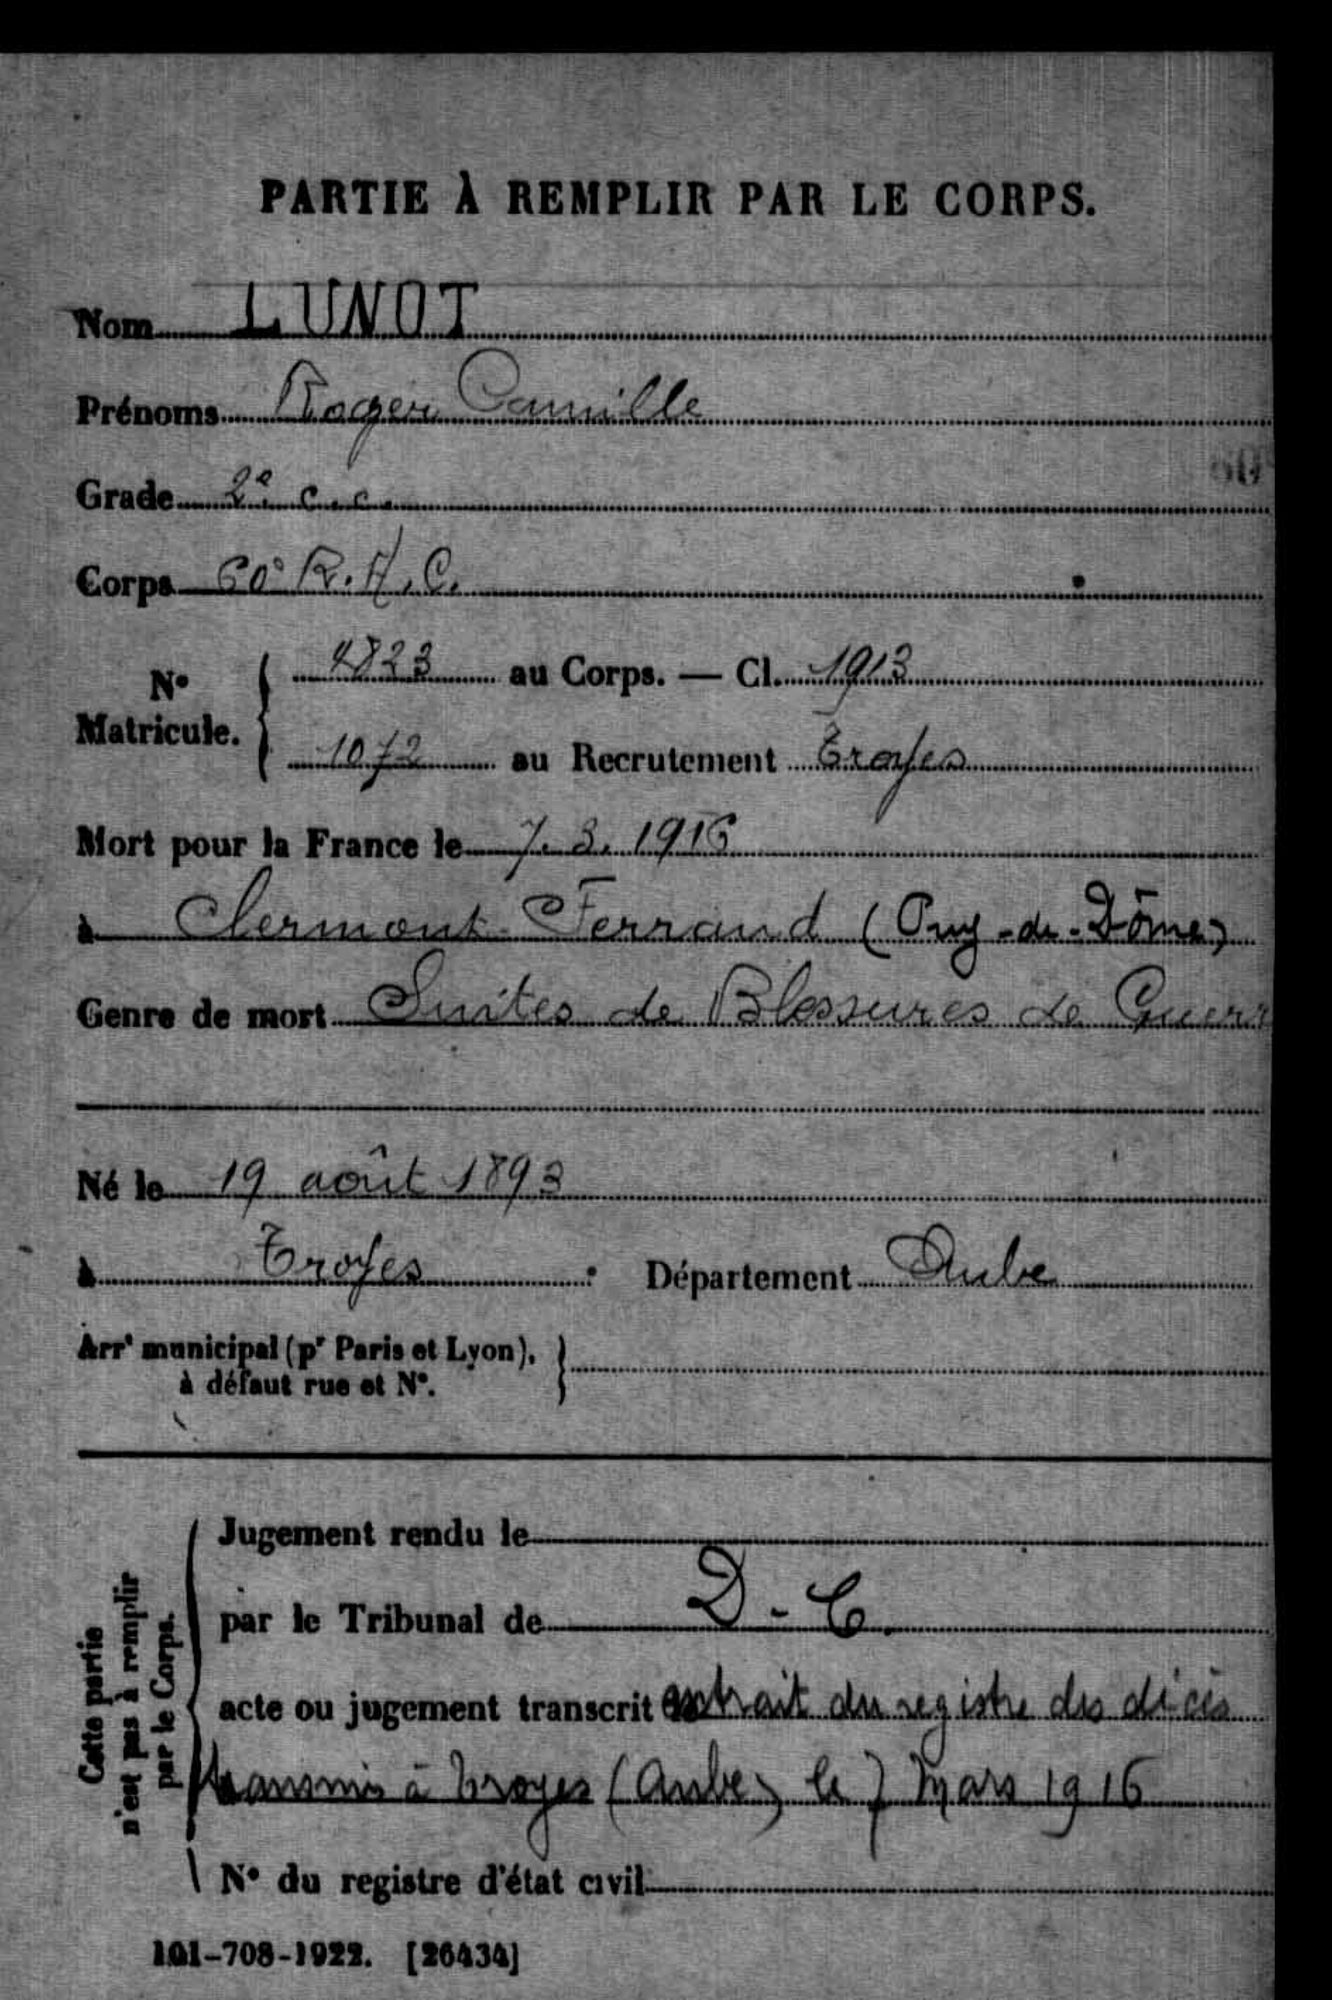 PARTIE À REMPLIR PAR LE CORPS.
Nom LUNOT
Prénoms Roger Camille
Grade 2e c.c.
Corps 60e R.A.C.
No Matricule. 4823 au Corps. — Cl. 1913
1072 au Recrutement Troyes
Mort pour la France le 7.3.1916
à Clermont-Ferrand (Puy-de-Dôme)
Genre de mort Suites de Blessures de Guerr
Né le 19 août 1893
à Troyes Département Aube
Arrt municipal (pr Paris et Lyon), à défaut rue et No.
Cette partie n'est pas à remplir par le Corps.
Jugement rendu le
par le Tribunal de D-C.
acte ou jugement transcrit extrait du registre des décès
transmis à Troyes (Aube) le 7 Mars 1916
No du registre d'état civil
101-708-1922. [26434]